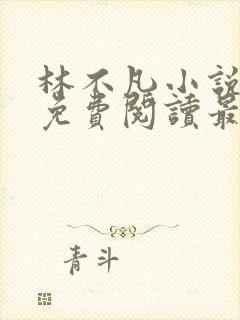 林不凡小說
免費閱讀最
青斗